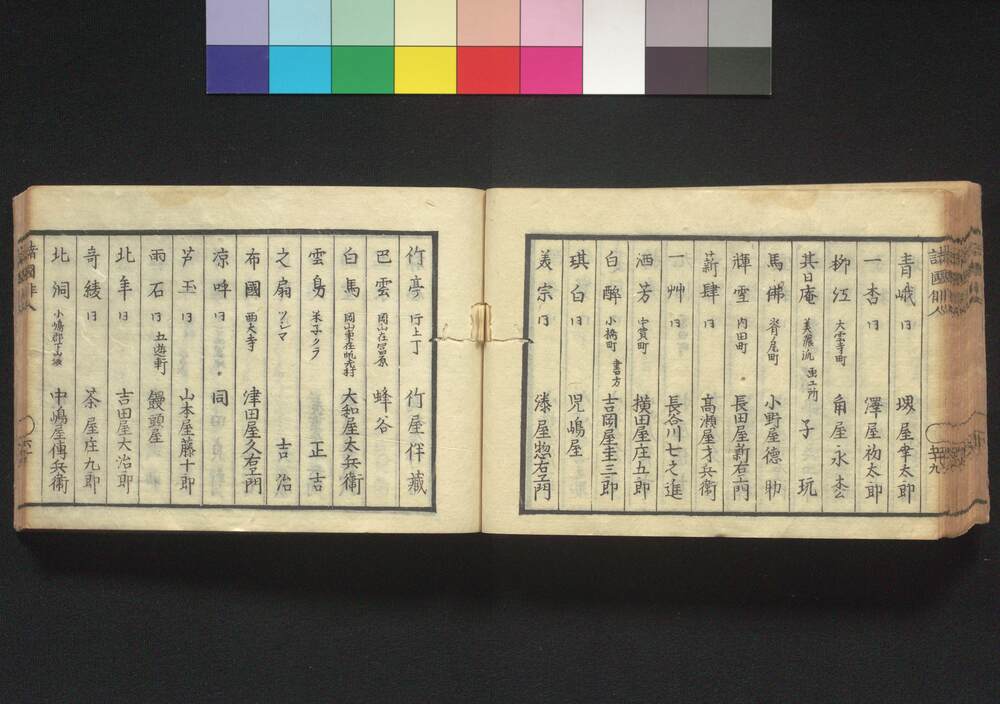 青峨 〃 堺屋幸太郎
一杏 〃 澤屋初太郎
柳江 大雲寺町 角屋永
其日庵 美濃派 子玩
馬佛 脊尾町 小野屋德
輝雪 内田町 長田屋新右エ門
薪肆 〃 高瀬屋才兵衛
一艸 〃 長谷川七之進
洒芳 中買町 横田屋庄五郎
白醉 小橋町 書方 吉岡屋圭三郎
琪白 〃 児嶋屋
美宗 〃 漆屋惣右エ門
竹亭 行上丁 竹屋伴藏
巴雲 岡山在宮原 蜂谷
白馬 岡山東在 大和屋太兵衛
雲身 米子クラ 正吉
之扇 ツシマ 吉治
布國 西大寺 津田屋久右エ門
凉呼 〃 同
芦玉 〃 山本屋藤十郎
雨石 〃 五遊軒 饅頭屋
北年 〃 吉田屋大治郎
奇綾 〃 茶屋庄九郎
北洞 小嶋郡下山坂 中嶋屋傳兵衛